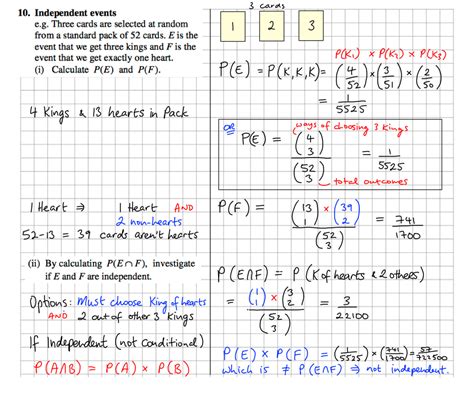 3 cards
10. Independent events
e.g. Three cards are selected at random
from a standard pack of 52 cards. E is the
event that we get three kings and F is the
event that we get exactly one heart.
(i) Calculate P(E) and P(F).
1 2 3
P(K₁) × P(K₂) × P(K₃)
P(E) = P(K,K,K) = (4/52) × (3/51) × (2/50)
= 1/5525
4 Kings & 13 hearts in Pack
OR
ways of choosing 3 Kings
P(E) = (4 3)/(52 3) = 1/5525
total outcomes
1 Heart ⇒ 1 Heart AND
2 non-hearts
52-13 = 39 cards aren't hearts
P(F) = (13 1) × (39 2)/(52 3) = 741/1700
(ii) By calculating P(E∩F), investigate
if E and F are independent.
Options: Must choose King of hearts
AND 2 out of other 3 Kings
If Independent (not Conditional)
P(A∩B) = P(A) × P(B)
P(E∩F) = P(K of hearts & 2 others)
= (1) × (3 2)/(52 3) = 3/22100
P(E) × P(F) = (1/5525) × (741/1700) = 57/722500
which is ≠ P(E∩F) ⇒ not independent.